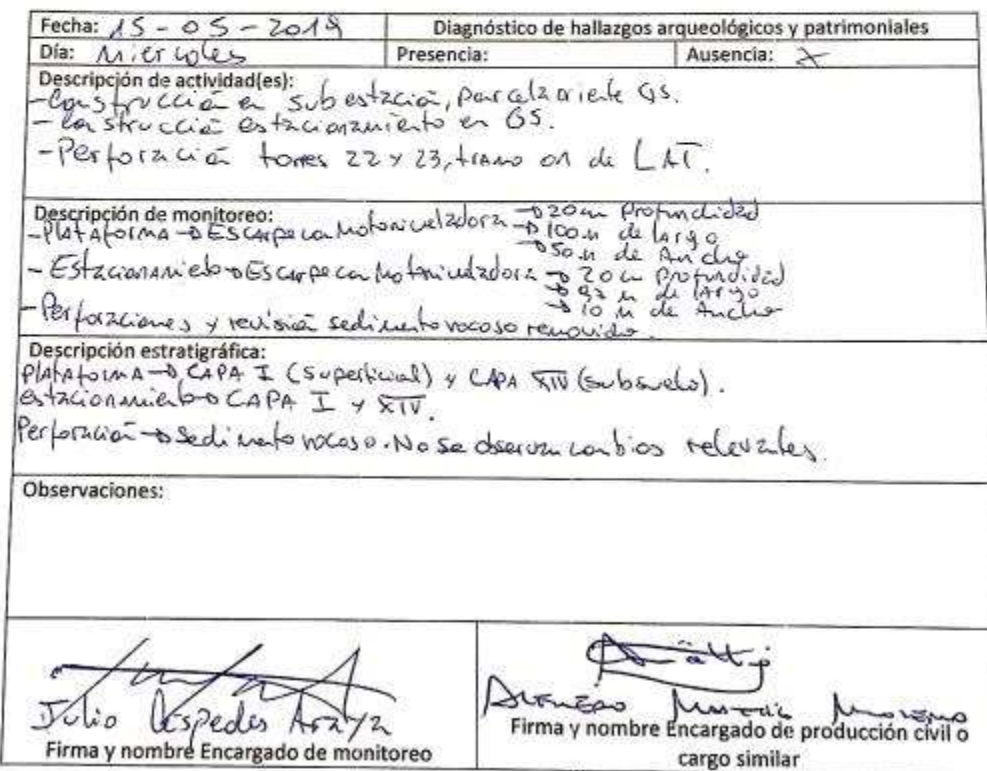 Fecha: 15-05-2019 Diagnóstico de hallazgos arqueológicos y patrimoniales
Día: Miercoles Presencia: Ausencia: X
Descripción de actividad(es):
- Construcción en subestación, parcela oriente GS.
- Construcción estacionamiento en GS.
- Perforación torres 22 y 23, tramo 01 de LAT.
Descripción de monitoreo:
- Plataforma → Escarpe con Motoniveladora → 20 cm Profundidad
→ 100 m de largo
→ 50 m de Ancho
- Estacionamiento → Escarpe con Motoniveladora → 20 cm profundidad
→ m de largo
→ 10 m de Ancho
- Perforaciones y revisión sedimento rocoso removido.
Descripción estratigráfica:
Plataforma → CAPA I (superficial) y CAPA XIV (subsuelo).
estacionamiento → CAPA I y XIV.
Perforación → Sedimento rocoso. No se observan cambios relevantes.
Observaciones:
Julio Cespedes Araya
Firma y nombre Encargado de monitoreo
Firma y nombre Encargado de producción civil o
cargo similar